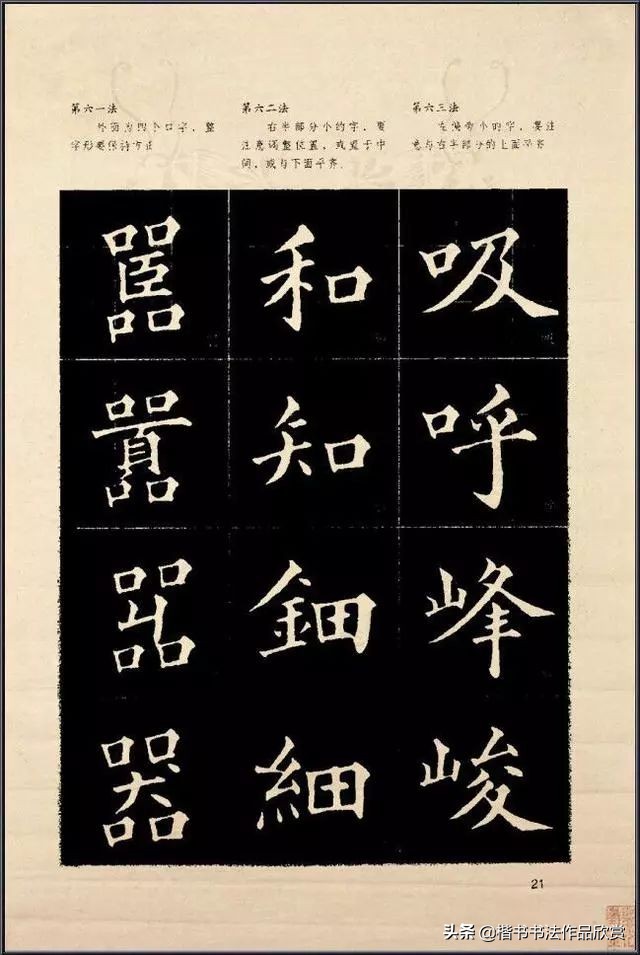 第六一法
外面为四个口字，整
字形要保持方正
第六二法
右半部分小的字，要
注意调整位置，或置于中
间，或与下面平齐。
第六三法
左偏旁小的字，要注
意与右半部分的上面平齐
嚚 和 吸
囂 知 呼
嘂 鈿 峰
器 細 峻
21
头条 @楷书书法作品欣赏